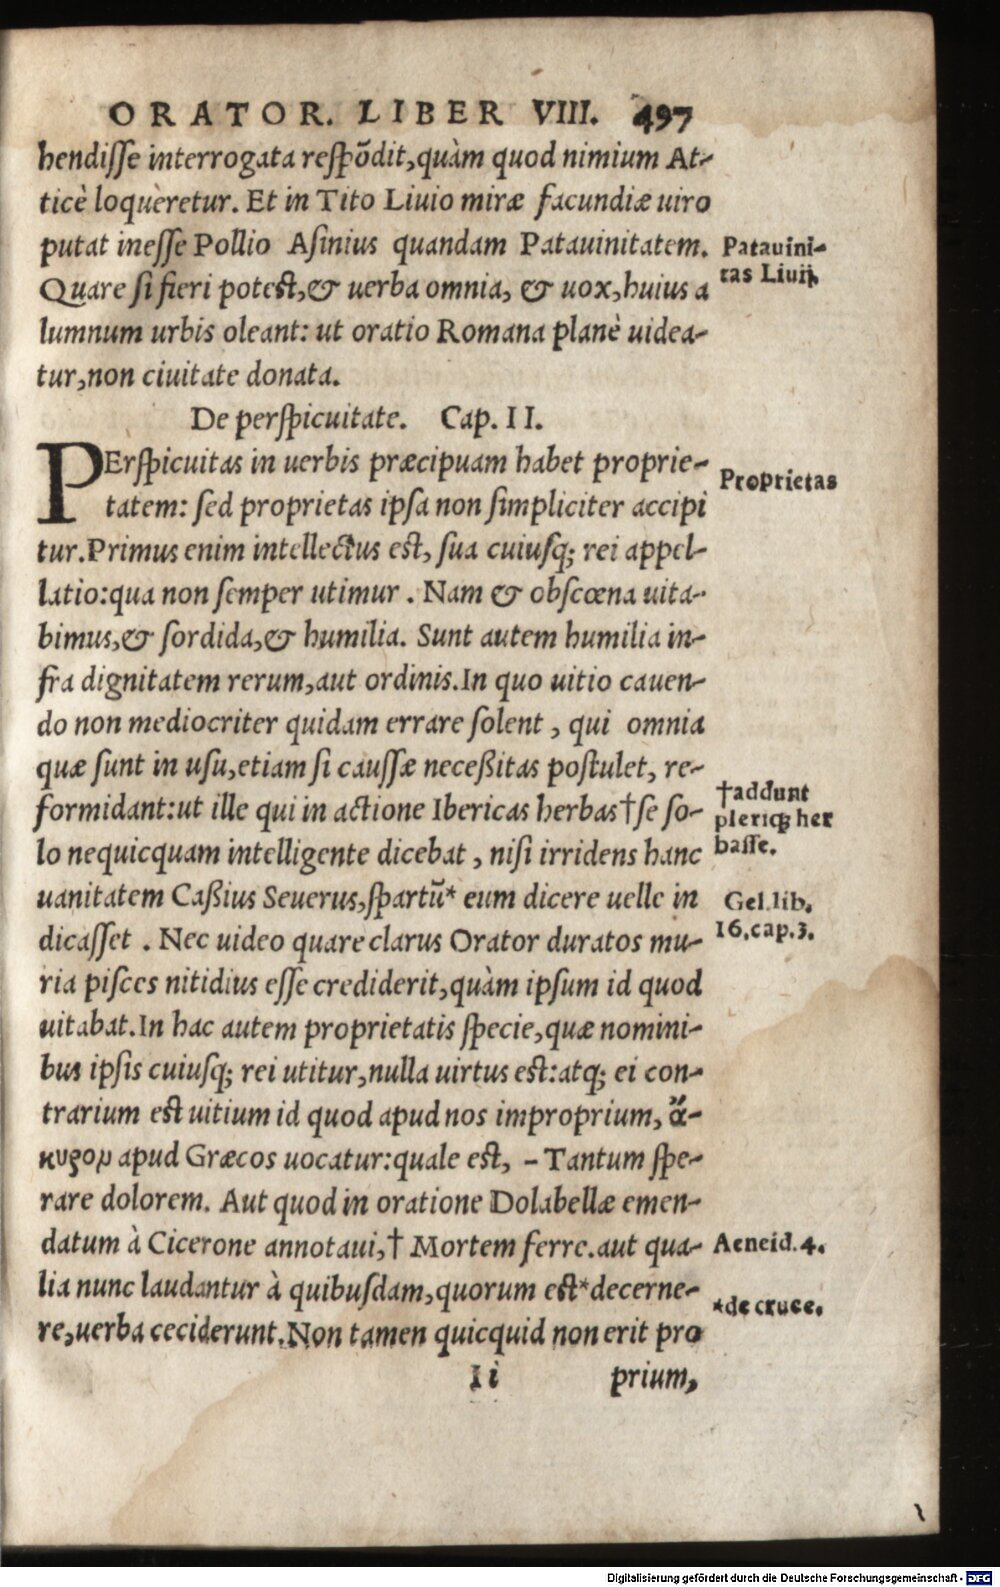 ORATOR. LIBER VIII. 497
hendisse interrogata respõdit, quàm quod nimium At-
ticè loqueretur. Et in Tito Liuio miræ facundiæ uiro
putat inesse Pollio Asinius quandam Patauinitatem.
Patauini-
tas Liuij.
Quare si fieri potest, & uerba omnia, & uox, huius a
lumnum urbis oleant: ut oratio Romana planè uidea-
tur, non ciuitate donata.
De perspicuitate. Cap. II.
PErspicuitas in uerbis præcipuam habet proprie-
Proprietas
tatem: sed proprietas ipsa non simpliciter accipi
tur. Primus enim intellectus est, sua cuiusq; rei appel-
latio: qua non semper utimur. Nam & obscœna uita-
bimus, & sordida, & humilia. Sunt autem humilia in-
fra dignitatem rerum, aut ordinis. In quo uitio cauen-
do non mediocriter quidam errare solent, qui omnia
quæ sunt in usu, etiam si caussæ neceßitas postulet, re-
formidant: ut ille qui in actione Ibericas herbas † se so-
†addunt
pleriq; her
basse.
lo nequicquam intelligente dicebat, nisi irridens hanc
uanitatem Caßius Seuerus, spartũ* eum dicere uelle in
Gel. lib.
16. cap. 3.
dicasset. Nec uideo quare clarus Orator duratos mu-
ria pisces nitidius esse crediderit, quàm ipsum id quod
uitabat. In hac autem proprietatis specie, quæ nomini-
bus ipsis cuiusq; rei utitur, nulla uirtus est: atq; ei con-
trarium est uitium id quod apud nos improprium, ἄ-
κυρον apud Græcos uocatur: quale est, - Tantum spe-
rare dolorem. Aut quod in oratione Dolabellæ emen-
datum à Cicerone annotaui, † Mortem ferre. aut qua-
Aeneid. 4.
lia nunc laudantur à quibusdam, quorum est *decerne-
*de cruce.
re, uerba ceciderunt. Non tamen quicquid non erit pro
Ii prium,
Digitalisierung gefördert durch die Deutsche Forschungsgemeinschaft - DFG